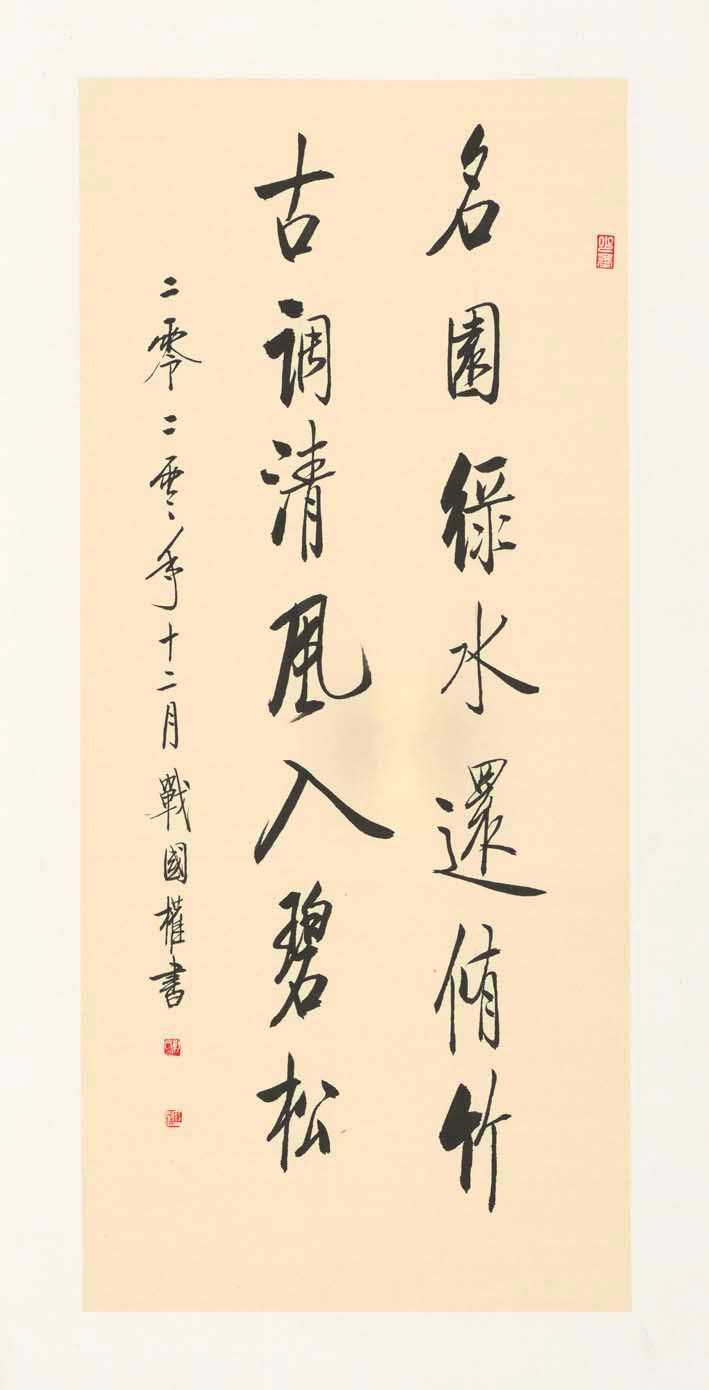 名園緑水還脩竹
古調清風入碧松
二零二零年十二月戰國權書